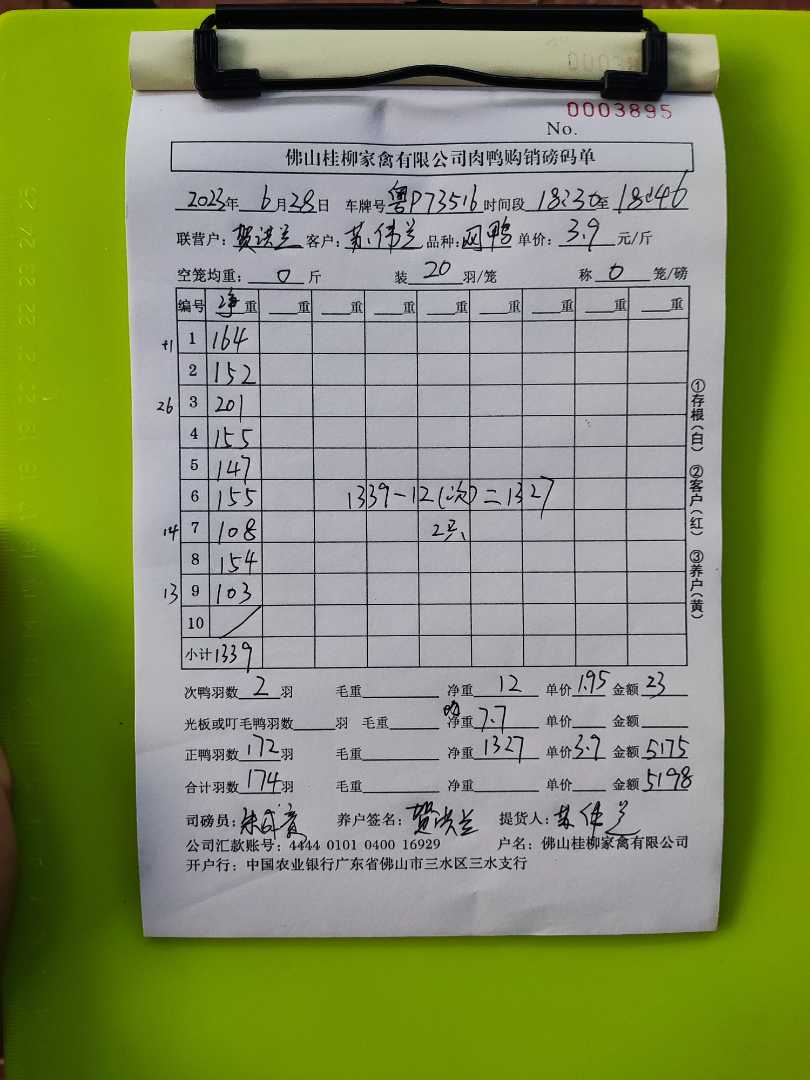 0003895
No.
佛山桂柳家禽有限公司肉鸭购销磅码单
2023年 6月28日 车牌号粤P73516时间段 18:30至18:46
联营户:贺洪兰 客户:苏伟兰 品种: 单价:3.9 元/斤
空笼均重: 0 斤 装 20 羽/笼 称 0 笼/磅
编号 净重 重 重 重 重 重 重 重 重
+1 1 164
2 152
26 3 201
4 155
5 147
6 155 1339-12(次)=1327
14 7 108 2只
8 154
13 9 103
10 /
小计 1339
①存根(白) ②客户(红) ③养户(黄)
次鸭羽数 2 羽 毛重 净重 12 单价 1.95 金额 23
光板或叮毛鸭羽数 羽 毛重 净重 7.7 单价 金额
正鸭羽数 172 羽 毛重 净重 1327 单价 3.9 金额 5175
合计羽数 174 羽 毛重 净重 单价 金额 5198
司磅员: 养户签名:贺洪兰 提货人:苏伟兰
公司汇款账号:4444 0101 0400 16929 户名:佛山桂柳家禽有限公司
开户行:中国农业银行广东省佛山市三水区三水支行